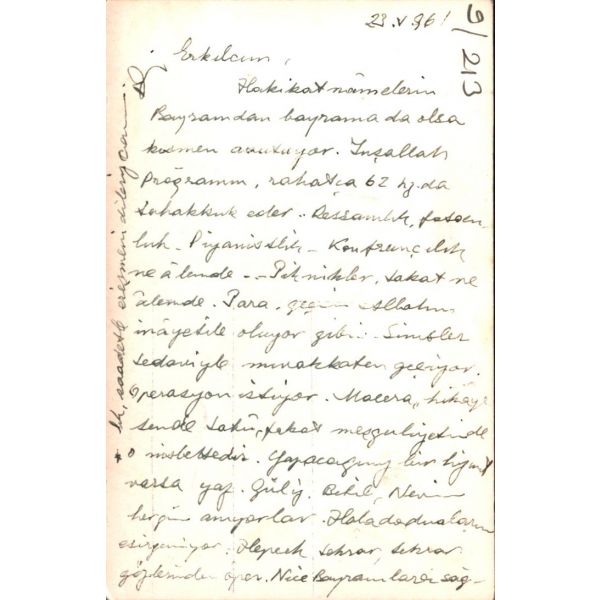 23.V.961
9/213
Erkilcim,
Hakikatnâmelerin
Bayramdan bayrama da olsa
kısmen avutuyor. İnşallah
Programın, rahatca 62 de
tahakkuk eder.. Ressamlık,
luk - Piyanistlik -
ne âlemde - - Piknikler, fakat ne
âlemde. Para, Allahın
inâyetile oluyor gibi. Sinüsler
tedaviyle muvakkaten geçiyor.
Operasyon istiyor. Macera, hikâye
sende fakat meşguliyetinde
o nisbettedir. Yapacağımız bir hizmet
varsa yaz. Nevin
hergün anıyorlar. Hala da dualarını
esirgemiyor. Hepsi tekrar, tekrar
gözlerinden öper. Nice Bayramlara sağ-
lık, saadetle erişmeni dileriz